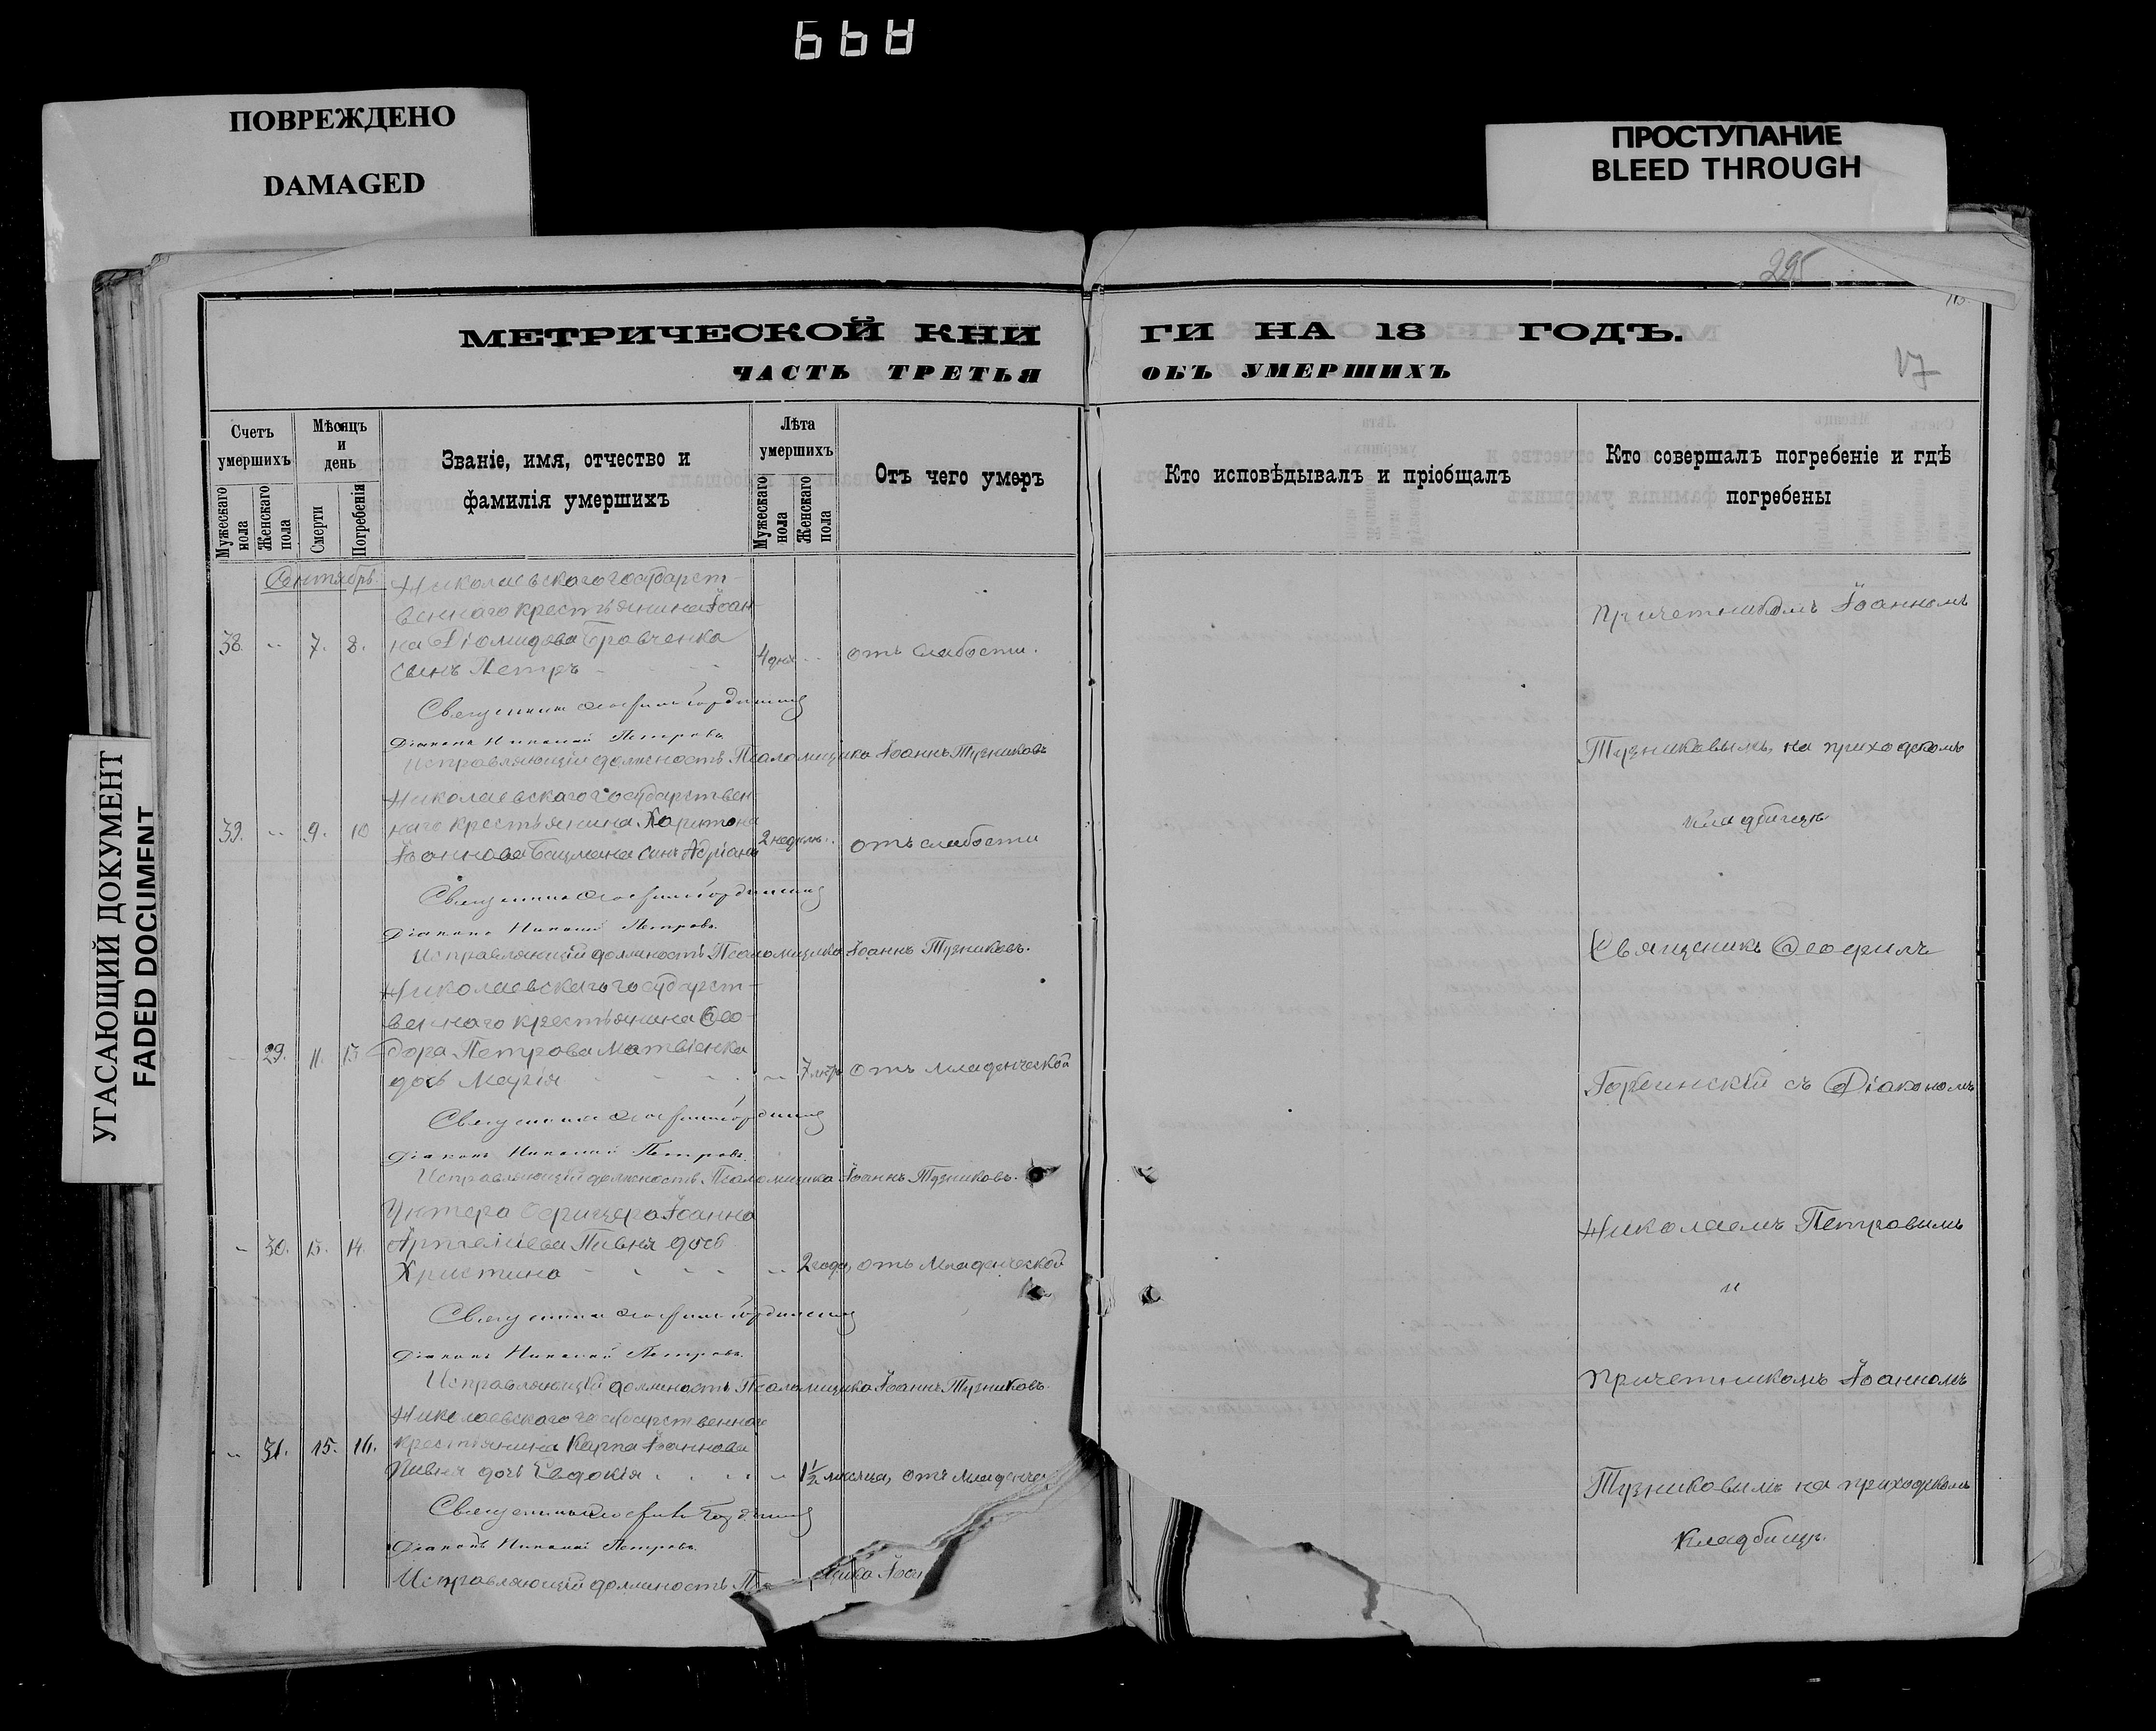 ПОВРЕЖДЕНО
DAMAGED
ПРОСТУПАНИЕ
BLEED THROUGH
УГАСАЮЩИЙ ДОКУМЕНТ
FADED DOCUMENT
295
17
МЕТРИЧЕСКОЙ КНИГИ НА 18 ГОДЪ.
ЧАСТЬ ТРЕТЬЯ ОБЪ УМЕРШИХЪ
Счетъ умершихъ
Мужескаго пола
Женскаго пола
Мѣсяцъ и день
Смерти
Погребенія
Званіе, имя, отчество и фамилія умершихъ
Лѣта умершихъ
Мужескаго пола
Женскаго пола
Отъ чего умеръ
Кто исповѣдывалъ и пріобщалъ
Кто совершалъ погребеніе и гдѣ погребены
Сентябрь.
Николаевскаго государст-
веннаго крестьянина Іоан-
38. 7. 8. на Діомидова Кравченка
сынъ Петръ 4 дня отъ слабости.
Священникъ Ѳеофилъ
Діаконъ Николай Петровъ
Исправляющій должность Псаломщика Іоаннъ Тузниковъ
Николаевскаго государствен-
39. 9. 10 наго крестьянина Харитона
Іоаннова Бацмана сынъ Адріанъ 2 недѣли отъ слабости
Священникъ Ѳеофилъ
Діаконъ Николай Петровъ.
Исправляющій должность Псаломщика Іоаннъ Тузниковъ.
Николаевскаго государст-
веннаго крестьянина Ѳео-
29. 11. 13 дора Петрова Матвіенка
дочь Марія отъ младенческой
Священникъ Ѳеофилъ
Діаконъ Николай Петровъ.
Исправляющій должность Псаломщика Іоаннъ Тузниковъ.
Унтеръ Офицера Іоанна
30. 13. 14. Пивня дочь
Христина 2 года, отъ младенческой
Священникъ Ѳеофилъ
Діаконъ Николай Петровъ.
Исправляющій должность Псаломщика Іоаннъ Тузниковъ.
Николаевскаго государственнаго
31. 15. 16. крестьянина Карпа Іоаннова
Пивня дочь Евдокія 1½ мѣсяца, отъ младенчес
Священникъ Ѳеофилъ
Діаконъ Николай Петровъ.
Исправляющій должность Пс щика Іоан
Причетникомъ Іоанномъ
Тузниковымъ, на приходскомъ
кладбищѣ
Священникъ Ѳеофилъ
съ Діакономъ
Николаемъ Петровымъ
и
Причетникомъ Іоанномъ
Тузниковымъ на приходскомъ
кладбищѣ.